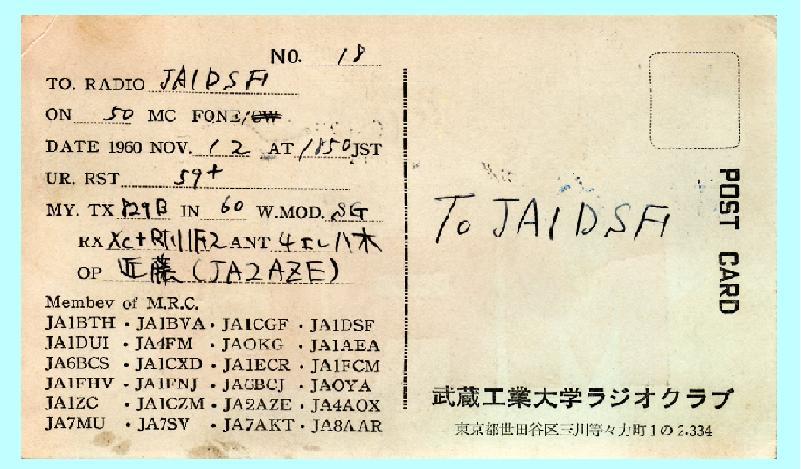 NO. 18
TO. RADIO JA1DSA
ON 50 MC FONE/CW
DATE 1960 NOV. 12 AT 1850 JST
UR. RST 59+
MY. TX 829B IN 60 W.MOD. SG
RX ANT 4エレ八木
OP 近藤 (JA2AZE)
Membev of M.R.C.
JA1BTH・JA1BVA・JA1CGF・JA1DSF
JA1DUI・JA4FM・JAOKG・JA1AEA
JA6BCS・JA1CXD・JA1ECR・JA1FCM
JA1FHV・JA1FNJ・JA6BCJ・JAOYA
JA1ZC・JA1CZM・JA2AZE・JA4AOX
JA7MU・JA7SV・JA7AKT・JA8AAR
POST CARD
To JA1DSA
武蔵工業大学ラジオクラブ
東京都世田谷区玉川等々力町1の2.334